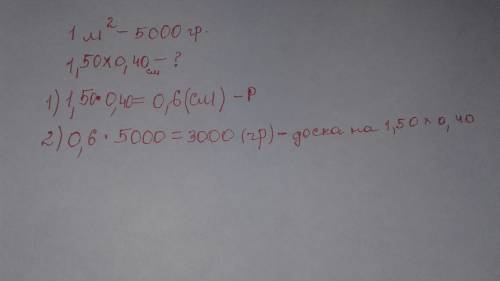 1 м² – 5000 гр.
1,50×0,40 см – ?
1) 1,50·0,40 = 0,6 (см) – P
2) 0,6 · 5000 = 3000 (гр) – доска на 1,50 × 0,40